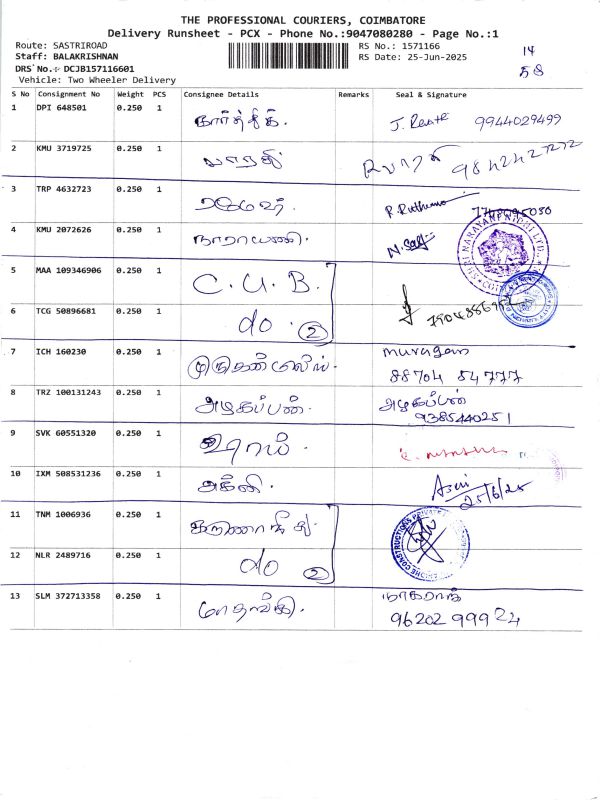 THE PROFESSIONAL COURIERS, COIMBATORE
Delivery Runsheet - PCX - Phone No.:9047080280 - Page No.:1
Route: SASTRIROAD
RS No.: 1571166
14
Staff: BALAKRISHNAN
RS Date: 25-Jun-2025
58
DRS No.: DCJB157116601
Vehicle: Two Wheeler Delivery
S No Consignment No Weight PCS Consignee Details Remarks Seal & Signature
1 DPI 648501 0.250 1 கார்த்திக். 9944029499
2 KMU 3719725 0.250 1
3 TRP 4632723 0.250 1
4 KMU 2072626 0.250 1 நாராயணி.
5 MAA 109346906 0.250 1 C.U.B.
6 TCG 50896681 0.250 1 do 2
7 ICH 160230 0.250 1 murugan
88704 84777
8 TRZ 100131243 0.250 1 அழகப்பன். அழகப்பன்
9385440251
9 SVK 60551320 0.250 1
10 IXM 508531236 0.250 1 அக்னி.
25/6/25
11 TNM 1006936 0.250 1
12 NLR 2489716 0.250 1 do 2
13 SLM 372713358 0.250 1 நாகராஜ்
96202 99924